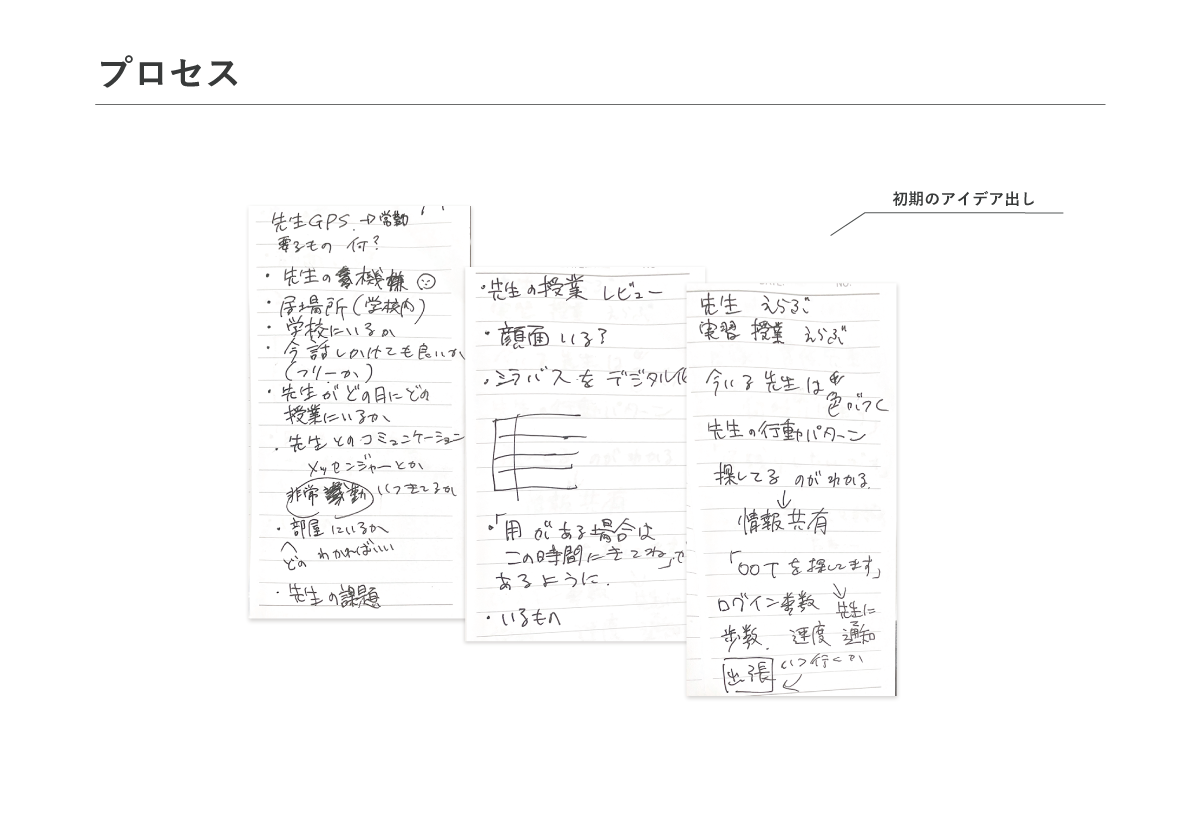 プロセス
初期のアイデア出し
先生GPS. → 常勤
要るもの 何?
・先生の機嫌
・居場所(学校内)
・学校にいるか
・今話しかけても良いか
(フリーか)
・先生がどの日にどの
授業にいるか
・先生とのコミュニケーション
メッセンジャーとか
非常勤 いつきてるか
・部屋にいるか
どの わかればいい
・先生の課題
・先生の授業 レビュー
・顔面いる?
・シラバスをデジタル化
・「用がある場合は
この時間にきてね」で
あるように.
・いるもの
先生 えらぶ
実習 授業 えらぶ
今いる先生は
色がつく
先生の行動パターン
探してるのがわかる.
↓
情報共有
「〇〇Tを探してます」
ログイン
先生に
歩数. 速度 通知
出張 いつ行くか